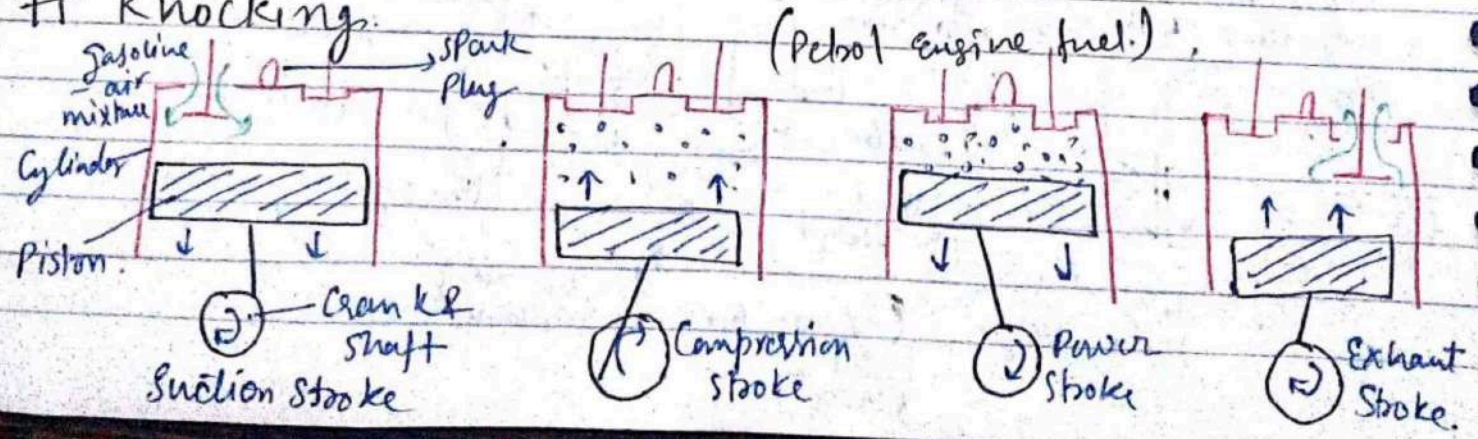 # Knocking.
(Petrol engine fuel.)
gasoline
- air
mixture
spark
plug
Cylinder
Piston.
Crank &
shaft
Suction stroke
Compression
stroke
Power
stroke
Exhaut
Stroke.